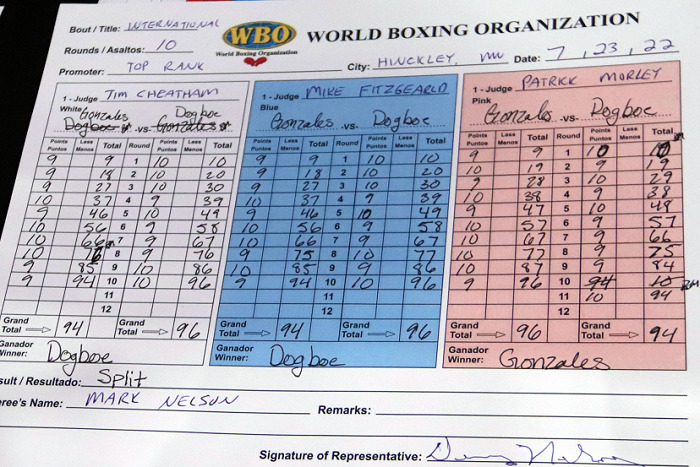 Bout / Title: INTERNATIONAL
WBO
World Boxing Organization
WORLD BOXING ORGANIZATION
Rounds / Asaltos: 10
Promoter: TOP RANK
City: HINCKLEY, MN Date: 7, 23, 22
1 - Judge TIM CHEATHAM 1 - Judge MIKE FITZGEARLD 1 - Judge PATRICK MORLEY
White Gonzales Dogboe Blue Pink
Dogboe vs- Gonzales Gonzales -vs- Dogboe Gonzales -vs- Dogboe
Points Puntos Less Menos Total Round Points Puntos Less Menos Total Points Puntos Less Menos Total Round Points Puntos Less Menos Total Points Puntos Less Menos Total Round Points Puntos Less Menos Total
9 9 1 10 10 9 9 1 10 10 9 9 1 10 10
9 18 2 10 20 9 18 2 10 20 10 19 2 9 19
9 27 3 10 30 9 27 3 10 30 9 28 3 10 29
10 37 4 9 39 10 37 4 9 39 10 38 4 9 38
9 46 5 10 49 9 46 5 10 49 9 47 5 10 48
10 56 6 9 58 10 56 6 9 58 10 57 6 9 57
10 66 7 9 67 10 66 7 9 67 10 67 7 9 66
10 76 8 9 76 9 75 8 10 77 10 77 8 9 75
9 85 9 10 86 10 85 9 9 86 10 87 9 9 84
9 94 10 10 96 9 94 10 10 96 9 96 10 94 10
11 11 11 10 94
12 12 12
Grand Total 94 Grand Total 96 Grand Total 94 Grand Total 96 Grand Total 96 Grand Total 94
Ganador Winner: Dogboe Ganador Winner: Dogboe Ganador Winner: Gonzales
sult / Resultado: Split
eree's Name: MARK NELSON Remarks:
Signature of Representative: